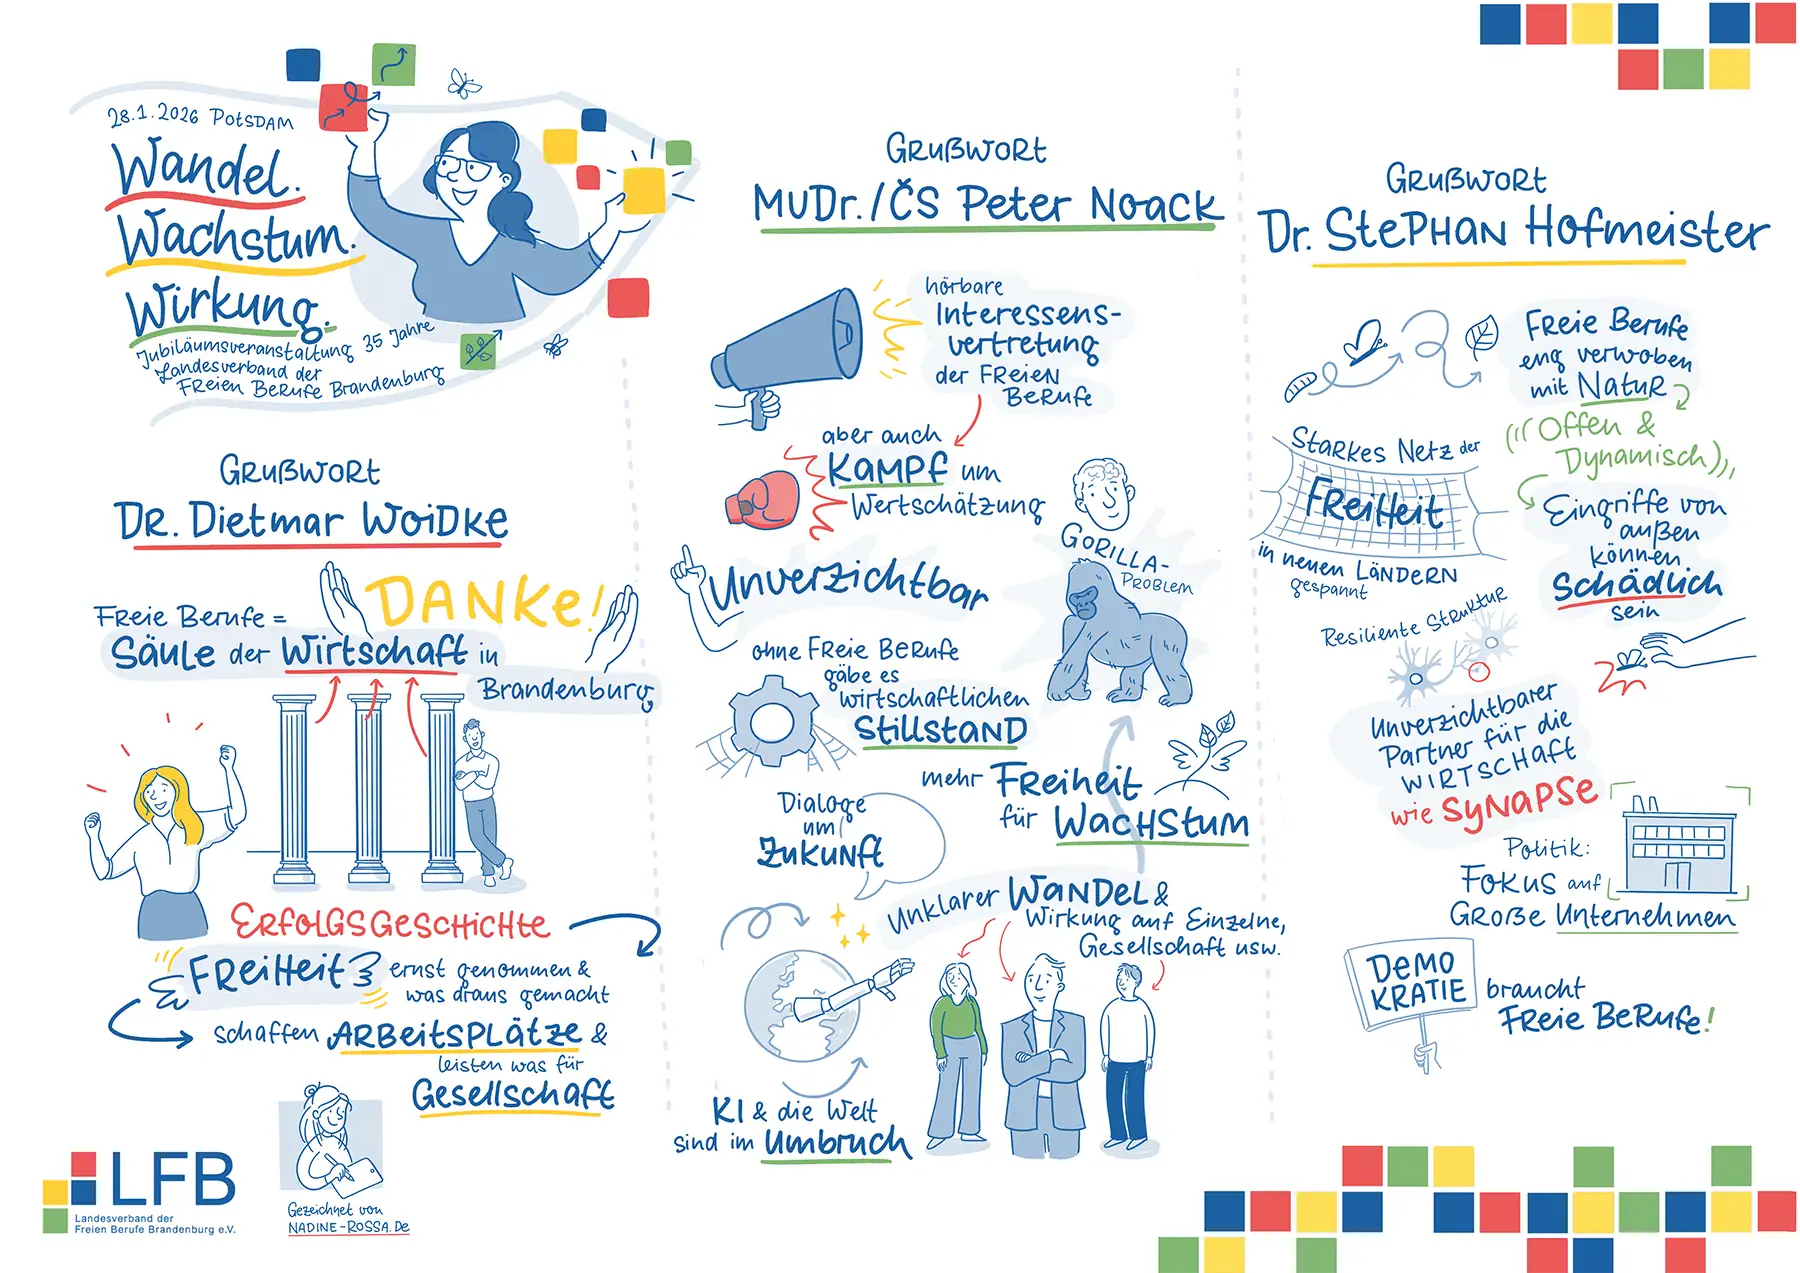 28.1.2026 Potsdam
Wandel.
Wachstum.
Wirkung.
Jubiläumsveranstaltung 35 Jahre
Landesverband der
Freien Berufe Brandenburg
Grußwort
Dr. Dietmar Woidke
DANKE!
Freie Berufe =
Säule der Wirtschaft in
Brandenburg
Erfolgsgeschichte
Freiheit ernst genommen &
was draus gemacht
schaffen Arbeitsplätze &
leisten was für
Gesellschaft
LFB
Landesverband der
Freien Berufe Brandenburg e.V.
Gezeichnet von
Nadine-Rossa.de
Grußwort
MUDr./ČS Peter Noack
hörbare
Interessens-
vertretung
der Freien
Berufe
aber auch
Kampf um
Wertschätzung
Unverzichtbar
Gorilla-
Problem
ohne Freie Berufe
gäbe es
wirtschaftlichen
Stillstand
mehr Freiheit
für Wachstum
Dialoge
um
Zukunft
Unklarer Wandel &
Wirkung auf Einzelne,
Gesellschaft usw.
KI & die Welt
sind im Umbruch
Grußwort
Dr. Stephan Hofmeister
Freie Berufe
eng verwoben
mit Natur
(Offen &
Dynamisch)
Starkes Netz der
Freiheit
in neuen Ländern
gespannt
Eingriffe von
außen
können
schädlich
sein
Resiliente Struktur
Unverzichtbarer
Partner für die
Wirtschaft
wie Synapse
Politik:
Fokus auf
Große Unternehmen
Demo
kratie
braucht
Freie Berufe!